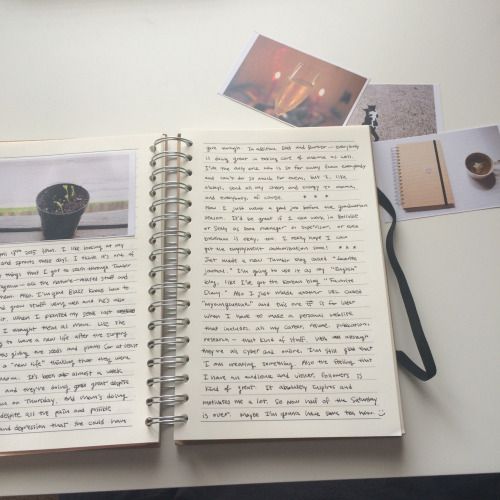 April 17th 2015 (Sat). I like looking at my
and sprouts these days. I think it's one of
things that I got to learn through Tumblr
all the nature-related stuff and
them. Also, I'm glad Buzz knows how to
and grow stuffs along well and he's also
it. When I planted my seeds last
I thought them as mom. Like the
to have a new life after the surgery
was giving the seeds and plants (or at least
a "new life" thinking that they were
mom. It's been almost a week
and they're doing great despite
on Thursday. And mom's doing
despite all the pain and possible
and depression that she could have
gone through. In addition, Dad and Brother — everybody
is doing great in taking care of mama as well.
I'm the only one who is so far away from everybody
and can't do so much for them, but I, like
always, send all my cheers and energy to mama,
and everybody, of course. * * *
Now I just want a good job before the graduation
season. It'd be great if I can work in
or as manager or supervisor, or even
is okay, too. I really hope I can
get the employment authorization soon! * * *
Just made a new Tumblr blog called "favorite
journal." I'm going to use it as my "English"
blog, like I've got the Korean blog "Favorite
Diary." Also I just made another URL called
and this one is for later
when I have to make a personal website
that includes all my career, resume, publication,
research — that kind of stuff.
they're all cyber and online, I'm still glad that
I am creating something. Also the feeling that
I have an audience and viewer, followers is
kind of great. It absolutely inspires and
motivates me a lot. So now half of the Saturday
is over. Maybe I'm gonna have some tea now. :)